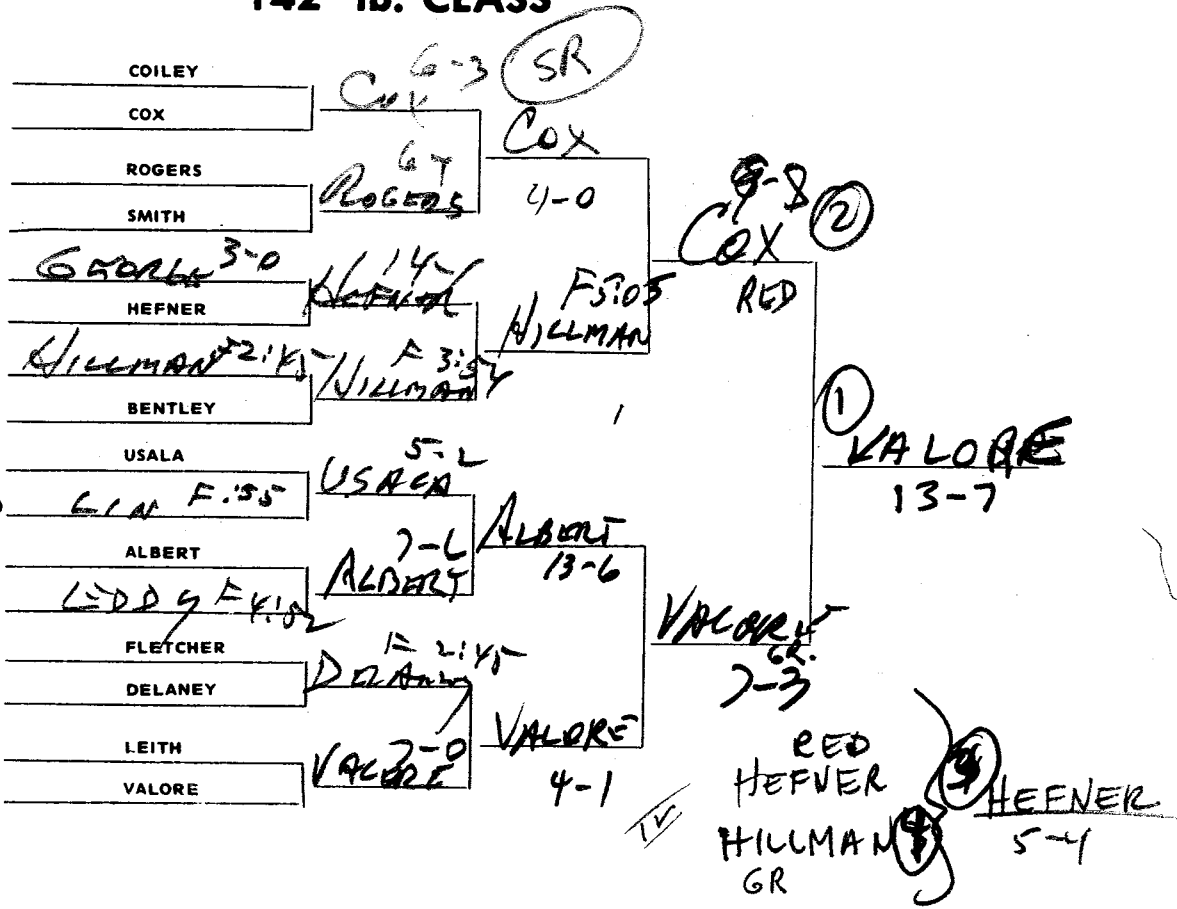 142 lb. CLASS
COILEY
COX
ROGERS
SMITH
GEORGE 3-0
HEFNER
HILLMAN F2:45
BENTLEY
USALA
F:55
ALBERT
LEDDY F4:52
FLETCHER
DELANEY
LEITH
VALORE
COX 6-3
SR
ROGERS
HEFNER
HILLMAN
USALA 5-2
ALBERT
DELANEY F 2:45
VALORE 7-0
COX
4-0
HILLMAN F5:05
ALBERT
13-6
VALORE
4-1
COX 2
RED
VALORE
GR.
7-3
1
VALORE
13-7
RED
HEFNER
HILLMAN
GR
HEFNER
5-4